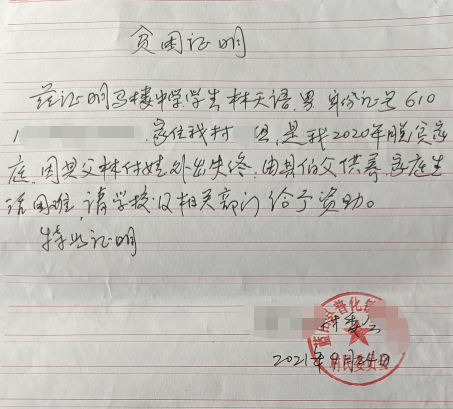 贫困证明
兹证明马楼中学学生林天语,男,身份证号610
1 家住我村 组,是我2020年脱贫家
庭,因其父林付娃外出失踪,由其伯父供养,家庭生
活困难,请学校及相关部门给予资助。
特此证明
村委会
2021年9月24日
村民委员会